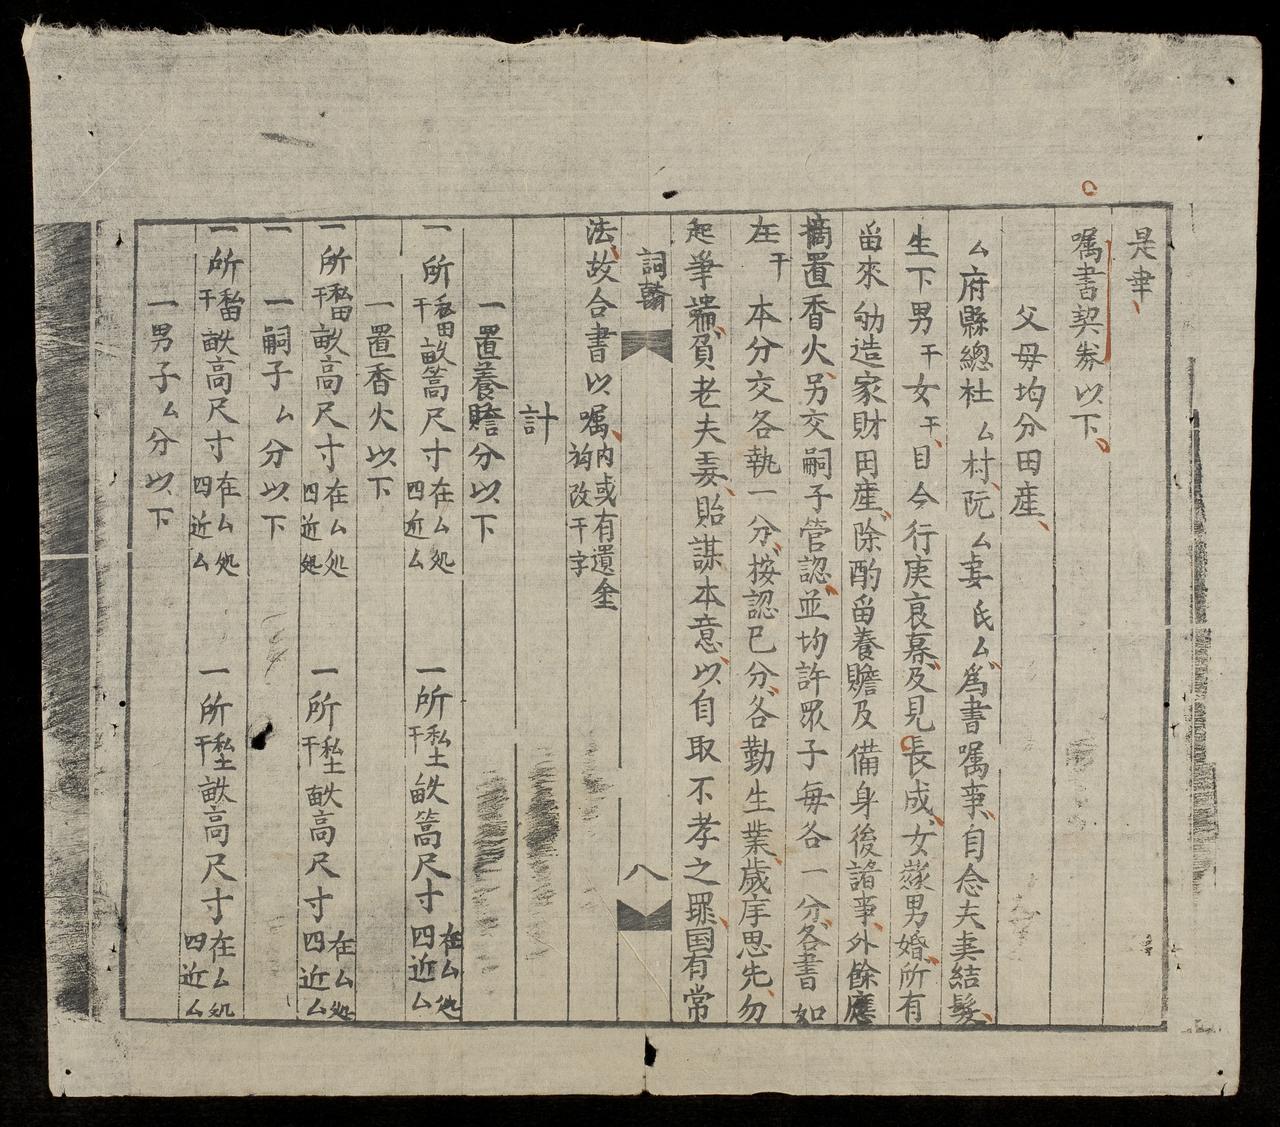 是幸
嘱書契券以下
父母均分田産
厶府縣總社厶村阮厶妻氏厶爲書嘱事自念夫妻結髮
生下男干女干目今行庚衰暮及見長成女嫁男婚所有
畄來刱造家財田産除酌畄養贍及備身後諸事外餘應
摘置香火另交嗣子管認並均許眾子每各一分各書如
左干 本分交各執一分按認已分各勤生業歲庤思先勿
起爭端負老夫妻貽謀本意以自取不孝之罪国有常
詞翰 八
法故合書以嘱内或有遺塗
衤勾改干字
計
一置養贍分以下
一所私田干畝高尺寸在厶処四近厶 一所私土干畝高尺寸在厶処四近厶
一置香火以下
一所私田干畝高尺寸在厶処四近処 一所私土干畝高尺寸在厶処四近厶
一 一嗣子厶分以下
一所私田干畝高尺寸在厶処四近厶 一所私土干畝高尺寸在厶処四近厶
一男子厶分以下